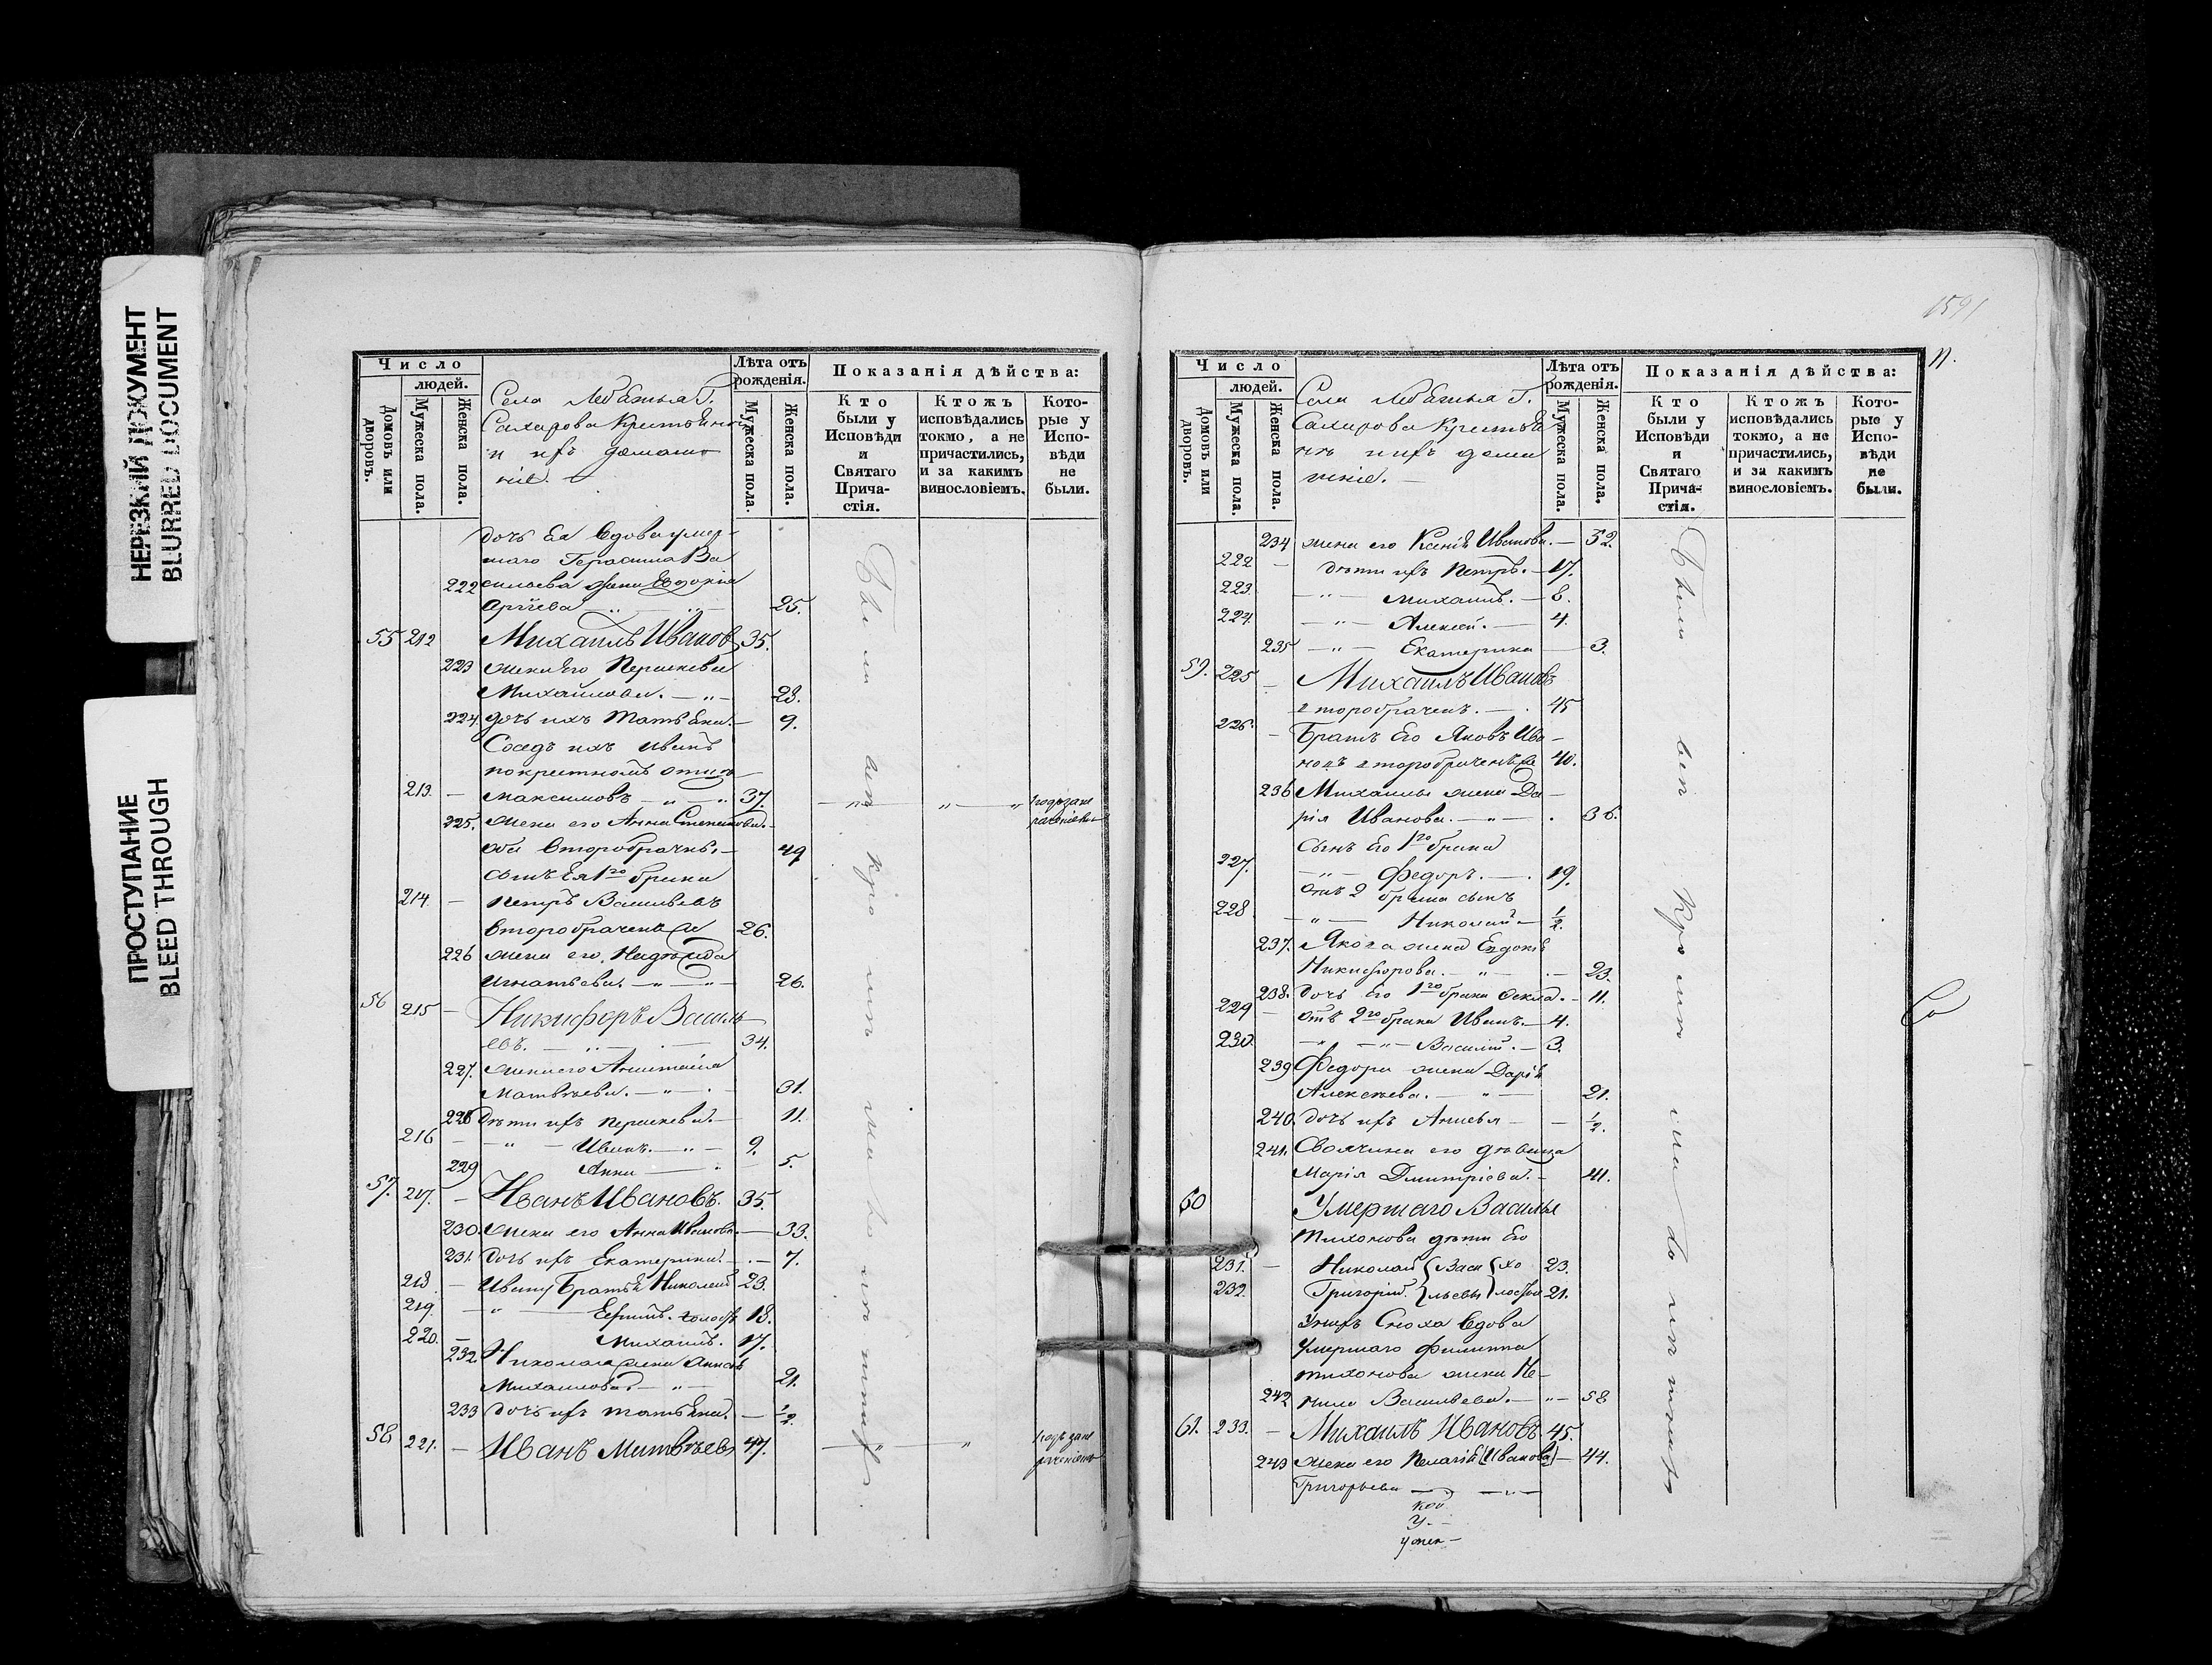 НЕРЕЗКИЙ ДОКУМЕНТ
BLURRED DOCUMENT
ПРОСТУПАНИЕ
BLEED THROUGH
Число
людей.
Домовъ или дворовъ.
Мужеска пола.
Женска пола.
Села Г.
Сахарова
и ихъ домашніе.
Лѣта отъ рожденія.
Мужеска пола.
Женска пола.
Показанія дѣйства:
Кто были у Исповѣди и Святаго Причастія.
Ктожъ исповѣдались токмо, а не причастились, и за какимъ винословіемъ.
Которые у Исповѣди не были.
дочь Ея вдова умер-
шаго Герасима Ва
222 сильева жена Евдокія
25.
55 212 Михаилъ Иванов 35.
223 жена его Параскева
Михайлова. 28.
224. дочь ихъ Татьяна. 9.
Соседъ ихъ Иванъ
по крестномъ отцѣ
213. Максимовъ 37.
225. жена его Анна Степанова.
оба второбрачные. 49
сынъ Ея 1го брака
214. Петръ Васильевъ
второбраченъ 26.
226 жена его Надежда
Игнатьева. 26.
56 215 Никифоръ Василь
евъ. 34.
227. жена его Анастасія
Матвѣева. 31.
228 Дѣти ихъ Параскева. 11.
216 Иванъ. 9.
229 Анна 5.
57. 217. Иванъ Ивановъ. 35.
230. жена его Анна Иванова. 33.
231. дочь ихъ Екатерина. 7.
218 Ивану Братья Николай 23.
219. Ефимъ. холостъ 18.
220. Михаилъ. 17.
232. Николая жена
Михаилова 21.
233 дочь ихъ Татьяна. 1/2.
58 221. Иванъ Матвѣев 47.
Были вси кромѣ малолѣтныхъ.
1591
11.
Число
людей.
Домовъ или дворовъ.
Мужеска пола.
Женска пола.
Села Г.
Сахарова Крестья
не и ихъ дома
шніе.
Лѣта отъ рожденія.
Мужеска пола.
Женска пола.
Показанія дѣйства:
Кто были у Исповѣди и Святаго Причастія.
Ктожъ исповѣдались токмо, а не причастились, и за какимъ винословіемъ.
Которые у Исповѣди не были.
234 жена его Ксенія Иванова. 52.
222 дѣти ихъ Петръ. 17.
223. Михаилъ. 8.
224. Алексей. 4.
235 Екатерина 3.
59. 225 Михаилъ Ивановъ
второбраченъ. 45
226. Братъ Его Яковъ Ива-
новъ второбраченъ 40.
236 Михаилы жена Да-
рія Иванова. 36.
Сынъ Его 1го брака
227. Федоръ. 19.
Отъ 2 брака сынъ
228 Николай 1/2.
237. Якова жена Евдокія
Никифорова. 23.
238. Дочь Его 1го брака Фекла. 11.
229 Отъ 2го брака Иванъ. 4.
230. Василій. 3.
239 Федора жена Дарія
Алексѣева. 21.
240. дочь ихъ Анисья 1/2.
241. Своячина его дѣвица
Марія Дмитріева. 41.
60 Умершаго Василья
Тихонова дѣти Его
231. Николай { Васи { хо 23.
232. Григорій. } льевы } лосты 21.
У нихъ Сноха вдова
Умершаго Филиппа
Тихонова жена Не-
242 нила Васильева. 58
61. 233. Михаилъ Ивановъ 45.
243 жена его Пелагія (Иванова) 44.
Григорьева
Были вси кромѣ малолѣтныхъ